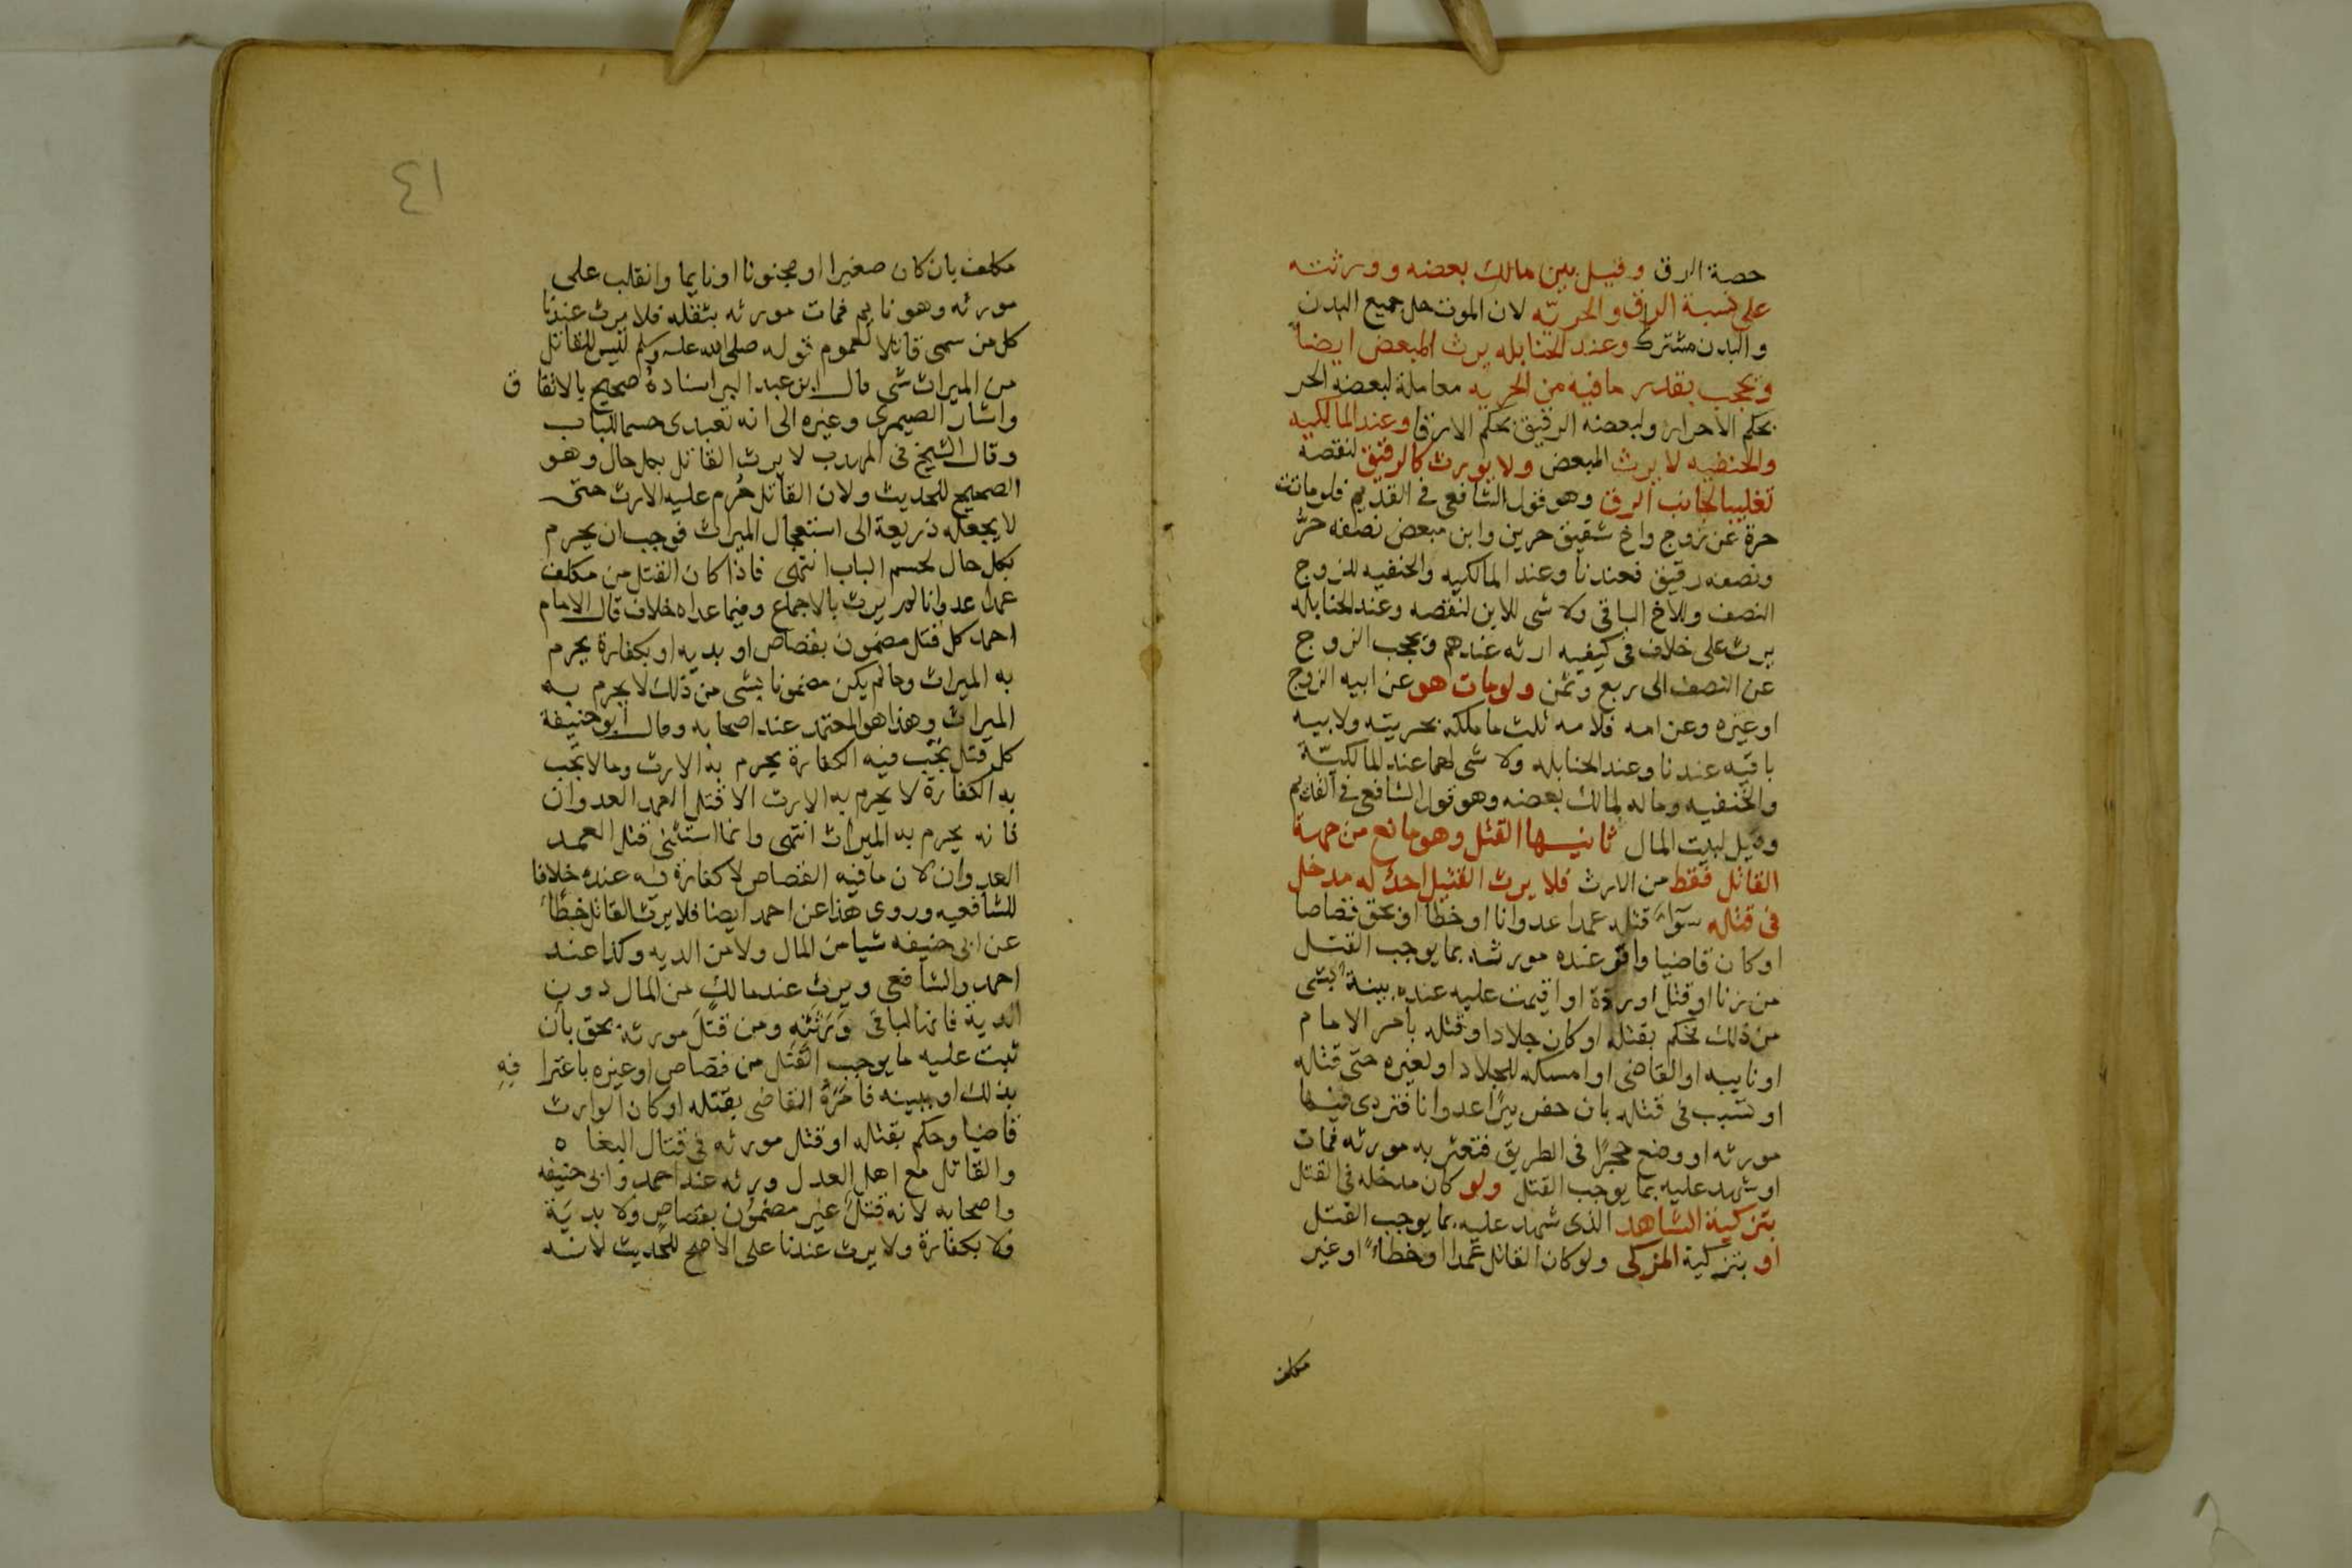 حصة الرق وقيل بين مالك بعضه وورثته
على نسبة الرق والحرية لان الموت حل جميع البدن
والبدن مشترك وعند الحنابله يرث المبعض ايضا
ويحجب بقدر ما فيه من الحريه معاملة لبعضه الحر
بحكم الاحرار ولبعضه الرقيق بحكم الارقا وعند المالكيه
والحنفيه لا يرث المبعض ولا يورث كالرقيق لنقصه
تغليبا لجانب الرق وهو قول الشافعى فى القديم فلو ماتت
حرة عن زوج واخ شقيق حرين وابن مبعض نصفه حرٌّ
ونصفه رقيق فعندنا وعند المالكيه والحنفيه للزوج
النصف وللاخ الباقى ولا شى للابن لنقصه وعند الحنابله
يرث على خلاف فى كيفيه ارثه عندهم ويحجب الزوج
عن النصف الى ربع وثمن ولو مات هو عن ابيه الزوج
او غيره وعن امه فلامه ثلث ما ملكه بحريته ولابيه
باقيه عندنا وعند الحنابله ولا شى لهما عند المالكيّة
والحنفيه وماله لمالك بعضه وهو قول الشافعى فى القديم
وقيل لبيت المال ثانيها القتل وهو مانع من جهة
القاتل فقط من الارث فلا يرث القتيل احدٌ له مدخل
فى قتله سوآء قتله عمدا عدوانا او خطا او بحق قصاصا
او كان قاضيا واقر عنده مورثه بما يوجب القتل
من زنا او قتل او ردة او اقيمت عليه عنده بينة بشى
من ذلك فحكم بقتله او كان جلادا وقتله بامر الامام
او نايبه او القاضى او امسكه للجلاد او لغيره حتى قتله
او تسبب فى قتله بان حفر بيرًا عدوانا فتردى فيها
مورثه او وضع حجرًا فى الطريق فتعثر به مورثه فمات
او شهد عليه بما يوجب القتل ولو كان مدخله فى القتل
بتزكية الشاهد الذى شهد عليه بما يوجب القتل
او بتزكية المزكى ولو كان القاتل عمدا او خطاءً او غير
مكلف
٤١
مكلف بان كان صغيرا او مجنونا او نايما وانقلب على
مورثه وهو نايم فمات مورثه بثقله فلا يرث عندنا
كل من سمى قاتلا لعموم قوله صلى الله عليه وسلم ليس للقاتل
من الميراث شى قال ابن عبد البر اسناده صحيح بالاتفاق
واشار الصيمرى وغيره الى انه تعبدى حسما للباب
وقال الشيخ فى المهذب لا يرث القاتل بكل حال وهو
الصحيح للحديث ولان القاتل حُرم عليه الارث حتى
لا يجعله ذريعة الى استعجال الميراث فوجب ان يحرم
بكل حال لحسم الباب انتهى فاذا كان القتل من مكلف
عمدا عدوانا لم يرث بالاجماع وفيما عداه خلاف قال الامام
احمد كل قتل مضمون بقصاص او بديه او بكفارة يحرم
به الميراث وما لم يكن مضمونا بشى من ذلك لا يحرم به
الميراث وهذا هو المعتمد عند اصحابه وقال ابو حنيفة
كل قتل يجب فيه الكفارة يحرم به الارث وما لا يجب
به الكفارة لا يحرم به الارث الا قتل العمد العدوان
فانه يحرم به الميراث انتهى وانما استثنى قتل العمد
العدوان لان ما فيه القصاص لا كفارة فيه عنده خلافا
للشافعيه وروى هذا عن احمد ايضا فلا يرث القاتل خطأً
عن ابى حنيفه شيا من المال ولا من الديه وكذا عند
احمد والشافعى ويرث عند مالك من المال دون
الدية فانها لباقى وَرَثَتِهِ ومن قَتَلَ مورثه بحق بان
ثبت عليه ما يوجب القتل من قصاص او غيره باعترافِهِ
بذلك او ببينه فاَمَرَهُ القاضى بقتله او كان الوارث
قاضيا وحكم بقتله او قتل مورثه فى قتال البغاه
والقاتل مع اهل العدل ورثه عند احمد وابى حنيفه
واصحابه لانه قتلٌ غير مضمون بقصاص ولا بديَة
ولا بكفارة ولا يرث عندنا على الاصح للحديث لانه